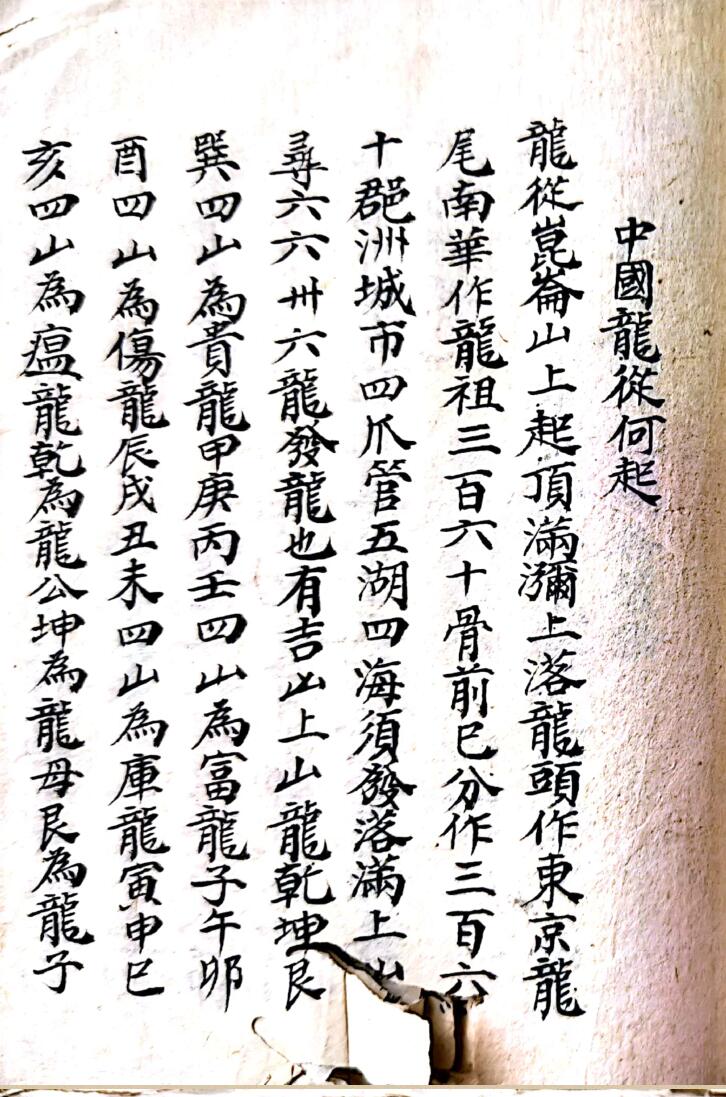 中國龍從何起
龍從崑崙山上起頂滿瀰上落龍頭作東京龍
尾南華作龍祖三百六十骨前已分作三百六
十郡洲城市四爪管五湖四海須發落滿上山
尋六六卅六龍發龍也有吉凶上山龍乾坤艮
巽四山為貴龍甲庚丙壬四山為富龍子午卯
酉四山為傷龍辰戌丑未四山為庫龍寅申巳
亥四山為瘟龍乾為龍公坤為龍母艮為龍子